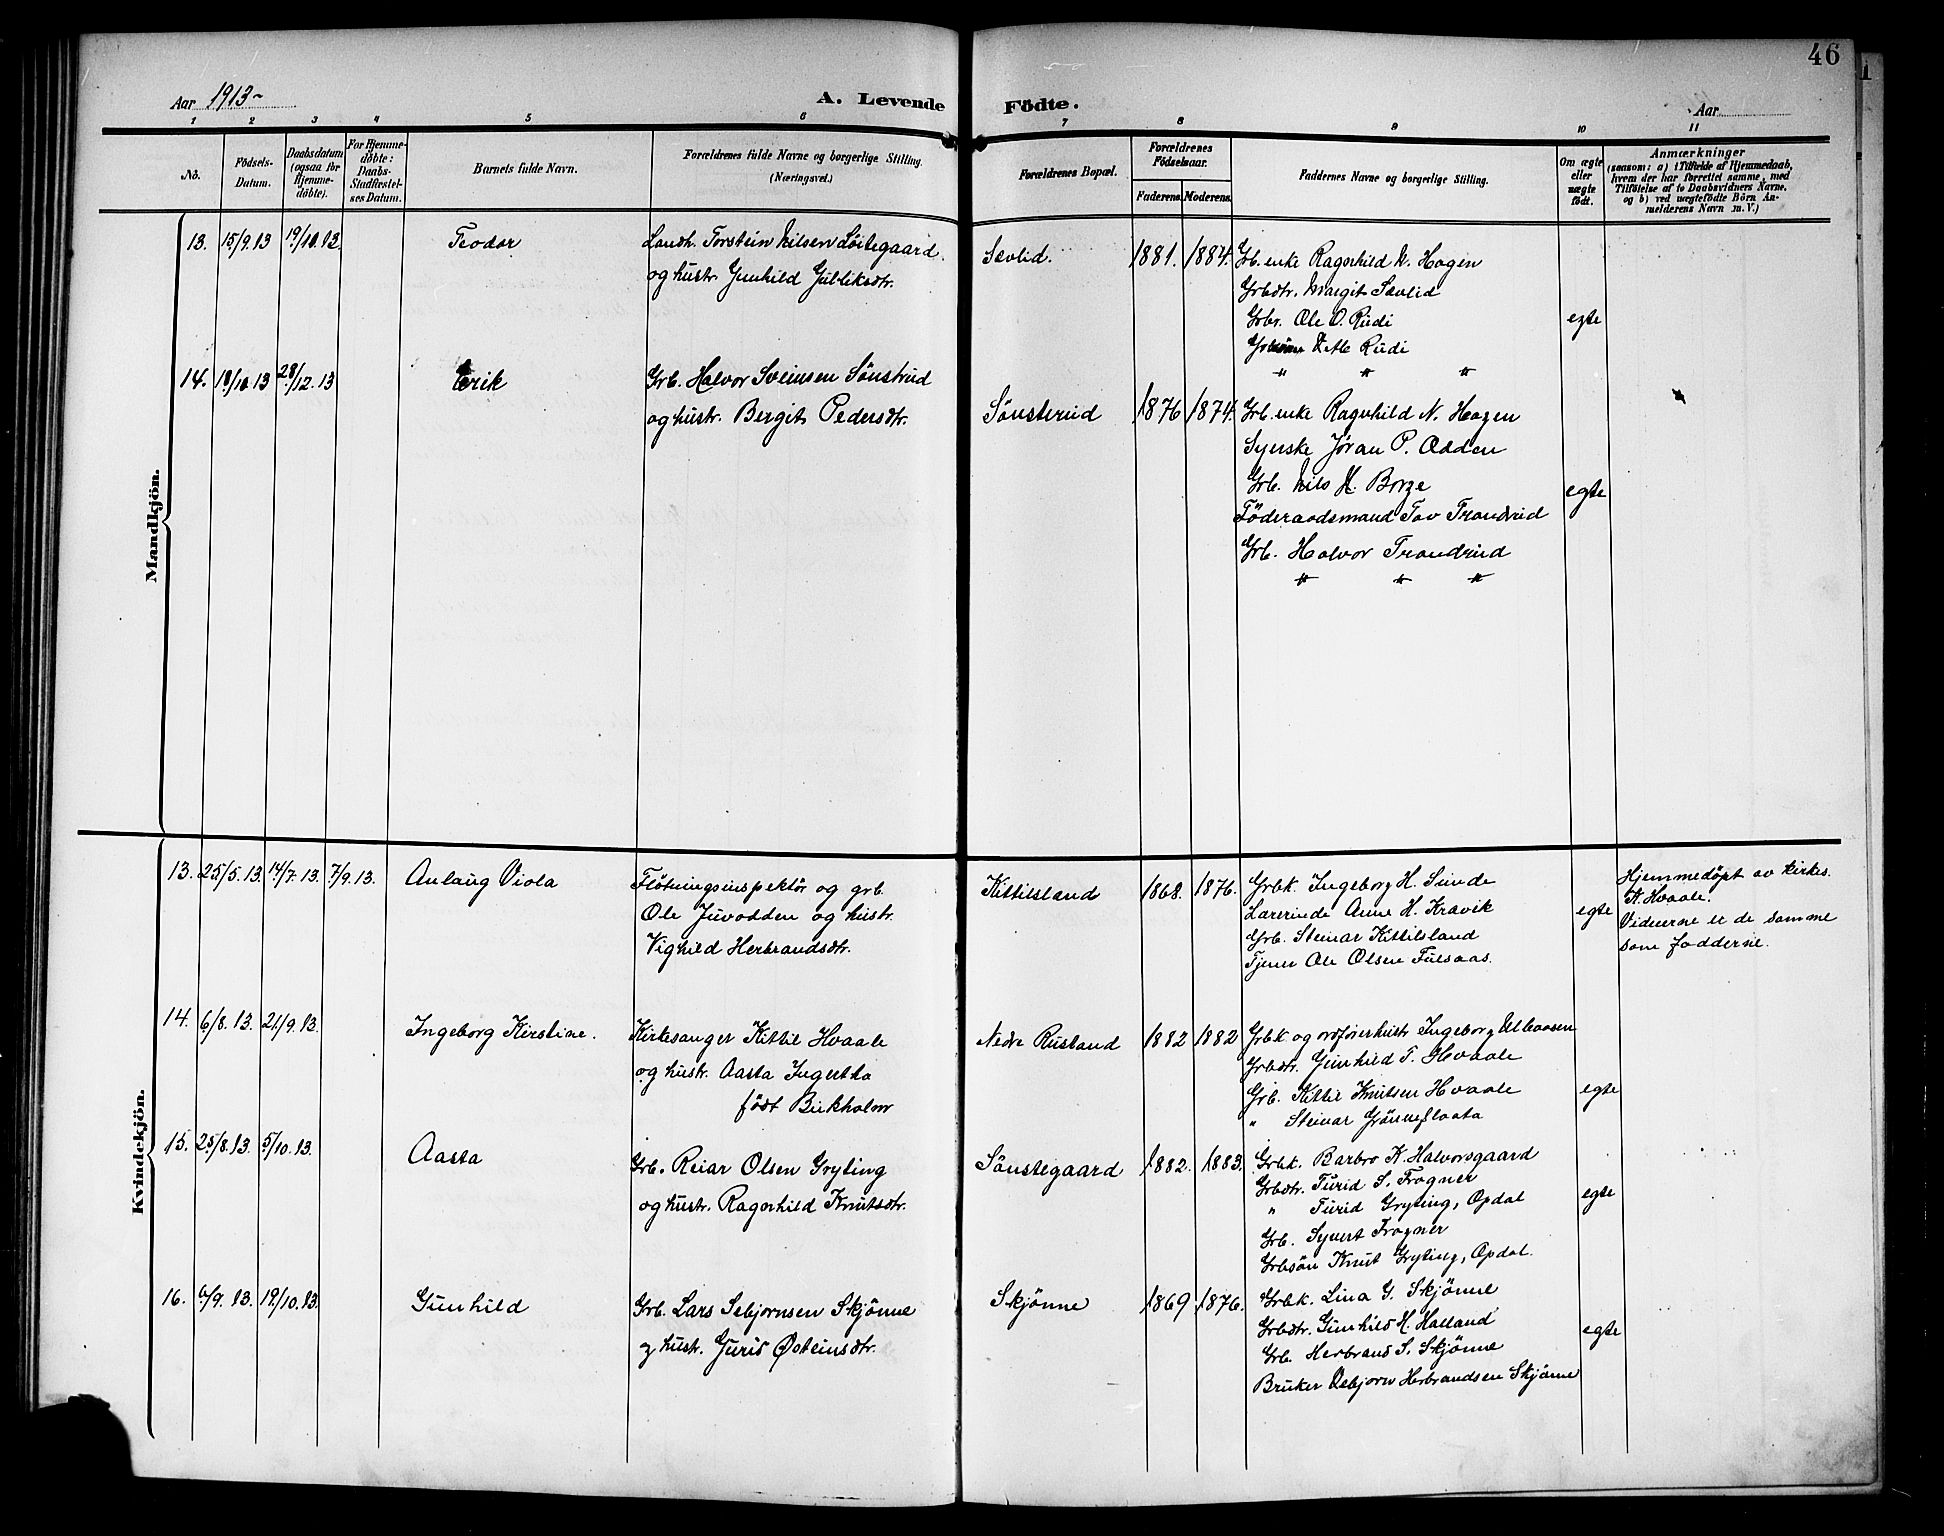 46
Aar 1913 ~
A. Levende Födte.
Aar
1 2 3 4 5 6 7 8 9 10 11
No.
Födsels-Datum.
Daabsdatum (ogsaa for Hjemme-döbte).
For Hjemme-döbte: Daabs-Stadfæstel-ses Datum.
Barnets fulde Navn.
Forældrenes fulde Navne og borgerlige Stilling. (Næringsvei.)
Forældrenes Bopæl.
Forældrenes Födselsaar.
Faderens. Moderens.
Faddernes Navne og borgerlige Stilling.
Om ægte eller uægte födt.
Anmærkninger
(saasom: a) i Tilfælde af Hjemmedaab,
hvem der har forrettet samme, med
Tilföielse af to Daabsvidners Navne.
og b) ved uægtefödte Börn An-
melderens Navn m. V.)
Mandkjön.
13. 15/9.13 19/10.13. Teodor
Landh. Torstein Nilsen Löitegaard.
og hustr. Gunhild Gullıksdtr.
Sævlid. 1881. 1884.
Grb.enke Ragnhild N. Hagen
Grbdtr. Margit Sævlid
Grbr. Ole O. Rudi
Ketle Rudi
" " "
egte
14. 18/10 13 28/12. 13 Erik
Grb. Halvor Sveinsen Sönstrud
og hustr. Bergit Pedersdtr.
Sönsterud 1876 1874.
Grb.enke Ragnhild N. Hagen
Syerske Jöran P. Odden
Grb. Nils H. Borge
Föderaadsmand Tov Trondrud
Grb. Halvor Trondrud
" " "
egte
Kvindekjön.
13. 25/5.13. 14/7.13. 7/9.13. Anlaug Viola
Flötningsinspektör og grb
Ole Juvodden og hustr.
Vighild Herbrandsdtr.
Kittilsland 1868. 1876.
Grbk. Ingeborg H. Sunde
Lærerinde Anne H. Kravik
Grb. Steinar Kittilsland
Tjener Ole Olsen Fulsaas.
egte
Hjemmedöpt av kirkes.
K. Hvaale.
Vidnerne er de samme
som fadderne.
14. 6/8.13. 21/9.13. Ingeborg Kirstine.
Kirkesanger Kittil Hvaale
og hustr. Aasta Ingertha
födt Birkholm
Nedre Rusland 1882 1882
Grbk og ordförerhustr Ingeborg Ulbaasen
Grbdtr. Gunhild T. Hvaale
Grb. Kittil Knutsen Hvaale
" Steinar Grönneflaata
egte
15. 25/8.13. 5/10.13. Aasta
Grb. Reiar Olsen Gryting
og hustr. Ragnhild Knutsdtr.
Sönstegaard 1882. 1883.
Grbk. Barbro K. Halvorsgaard
Grbdtr. Turid S. Frogner
" Turid Gryting, Opdal
Grb. Syvert Frogner
Grbsön Knut Gryting, Opdal.
egte
16. 6/9. 13. 19/10.13. Gunhild
Grb. Lars Sebjornsen Skjönne
og hustr. Guris Østeinsdtr.
Skjönne 1869 1876.
Grbk. Lina G. Skjönne
Grbdtr. Gunhild H. Halland
Grb. Herbrand S. Skjönne
Bruker Asbjorn Herbrandsen Skjönne
egte